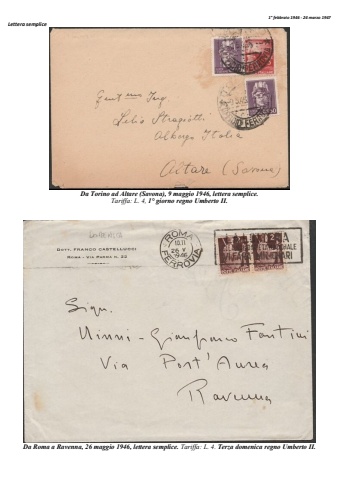 1° febbraio 1946 - 24 marzo 1947
Lettera semplice
Gent.mo Ing.
Lelio Stragiotti
Albergo Italia
Altare (Savona)
Da Torino ad Altare (Savona), 9 maggio 1946, lettera semplice.
Tariffa: L. 4. 1° giorno regno Umberto II.
DOTT. FRANCO CASTELLUCCI
ROMA - VIA PARMA N. 22
ROMA
FERROVIA
10.11
26 V
1946
LOTTERIA
Sign.
Ninni - Gianfranco Fantini
Via Port'Aurea
Ravenna
Da Roma a Ravenna, 26 maggio 1946, lettera semplice. Tariffa: L. 4. Terza domenica regno Umberto II.